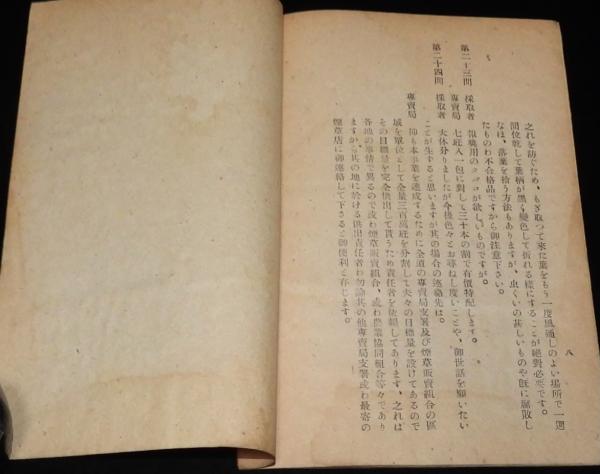 八
之れを防ぐため、もぎ取つて来た葉をもう一度風通しのよい場所で一週
間位乾して葉柄が黒く変色して折れる様にすることが絶対必要です。
なほ、落葉を拾う方法もありますが、虫くいの甚しいものや既に腐敗し
たものわ不合格品ですから御注意下さい。
第二十三問 採取者 報奨用のタバコが欲しいものですが。
専賣局 七瓩入一包に對して三十本の割で有償特配します。
第二十四問 採取者 大体分りましたが今後色々とお尋ねし度いことや、御世話を願いたい
ことが生ずると思いますが其の場合の連絡先は。
専賣局 卸も本事業を達成するために全道の専賣局支署及び煙草販賣組合の區
域を單位として全量三百萬瓩を分割して夫々の目標量を設けてあるので
その目標量を完全供出して貰うため責任者を依頼してあります、之れは
各地の事情で異るので或わ煙草販賣組合、或わ農業協同組合等々であり
ますから其の地に於ける供出責任者わ勿論其の他専賣局支署或わ最寄の
煙草店に御連絡して下さると御便利と存じます。